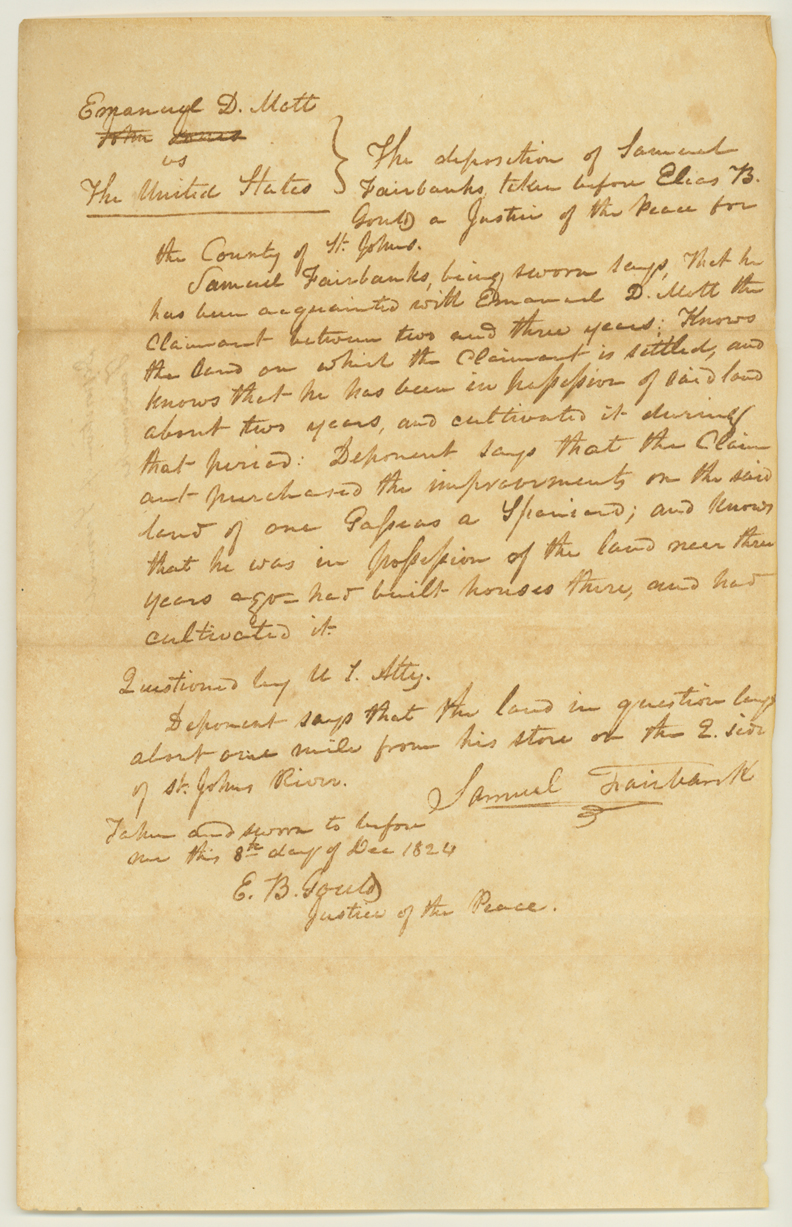 Emanuel D. Mott
John Jones
vs
The United States
The deposition of Samuel
Fairbanks, taken before Elias B.
Gould a Justice of the Peace for
the County of St. Johns.
Samuel Fairbanks, being sworn says, That he
has been acquainted with Emanuel D. Mott the
Claimant between two and three years: Knows
the land on which the Claimant is settled, and
knows that he has been in possession of said land
about two years, and cultivated it during
that period: Deponent says that the Claim
ant purchased the improvements on the said
land of one a Spaniard; and knows
that he was in possession of the land near three
years ago - had built houses there, and had
cultivated it.
Questioned by U S. Atty.
Deponent says that the land in question lays
about one mile from his store on the E. side
of St. Johns River.
Samuel Fairbank
Taken and sworn to before
me this 8th day of Dec 1824
E. B. Gould
Justice of the Peace.